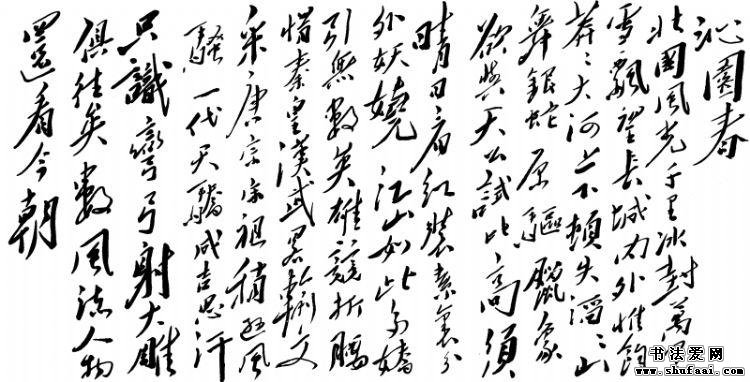 沁園春
北國風光千里冰封萬里
雪飄望長城内外惟餘
莽〻大河上下頓失滔〻山
舞銀蛇原驅臘象
欲與天公試比高須
晴日看紅裝素裹分
外妖嬈江山如此多嬌
引無數英雄競折腰
惜秦皇漢武畧輸文
采唐宗宋祖稍遜風
騷一代天驕成吉思汗
只識彎弓射大雕
俱往矣數風流人物
還看今朝
书法爱网
www.shufaai.com